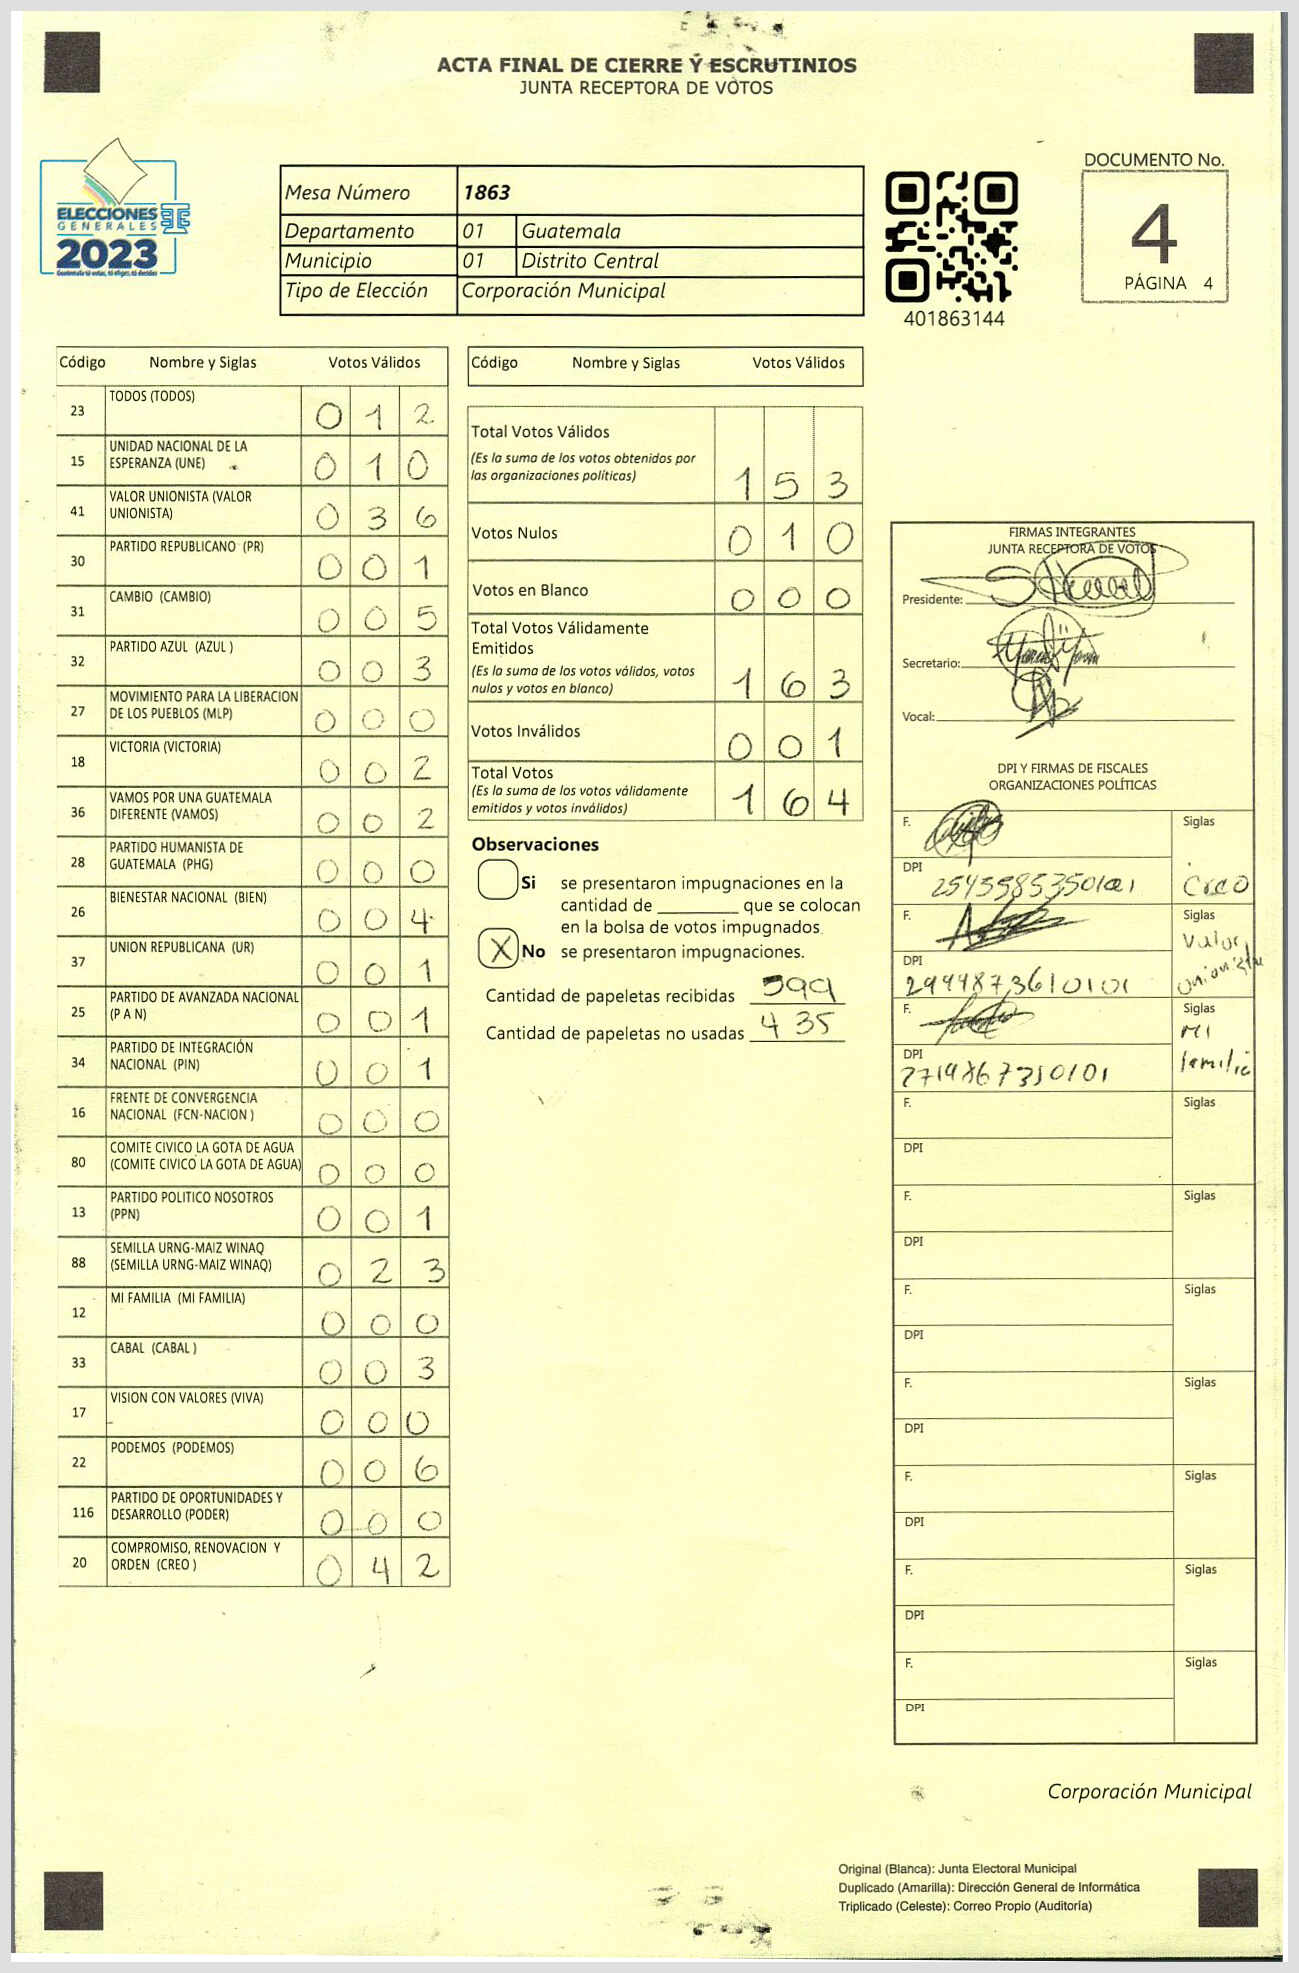 ACTA FINAL DE CIERRE Y ESCRUTINIOS
JUNTA RECEPTORA DE VOTOS
ELECCIONES
GENERALES
2023
Mesa Número 1863
Departamento 01 Guatemala
Municipio 01 Distrito Central
Tipo de Elección Corporación Municipal
401863144
DOCUMENTO No.
4
PÁGINA 4
Código Nombre y Siglas Votos Válidos
23 TODOS (TODOS) 0 1 2
15 UNIDAD NACIONAL DE LA
ESPERANZA (UNE) 0 1 0
41 VALOR UNIONISTA (VALOR
UNIONISTA) 0 3 6
30 PARTIDO REPUBLICANO (PR) 0 0 1
31 CAMBIO (CAMBIO) 0 0 5
32 PARTIDO AZUL (AZUL ) 0 0 3
27 MOVIMIENTO PARA LA LIBERACION
DE LOS PUEBLOS (MLP) 0 0 0
18 VICTORIA (VICTORIA) 0 0 2
36 VAMOS POR UNA GUATEMALA
DIFERENTE (VAMOS) 0 0 2
28 PARTIDO HUMANISTA DE
GUATEMALA (PHG) 0 0 0
26 BIENESTAR NACIONAL (BIEN) 0 0 4
37 UNION REPUBLICANA (UR) 0 0 1
25 PARTIDO DE AVANZADA NACIONAL
(P A N) 0 0 1
34 PARTIDO DE INTEGRACIÓN
NACIONAL (PIN) 0 0 1
16 FRENTE DE CONVERGENCIA
NACIONAL (FCN-NACION ) 0 0 0
80 COMITE CIVICO LA GOTA DE AGUA
(COMITE CIVICO LA GOTA DE AGUA) 0 0 0
13 PARTIDO POLITICO NOSOTROS
(PPN) 0 0 1
88 SEMILLA URNG-MAIZ WINAQ
(SEMILLA URNG-MAIZ WINAQ) 0 2 3
12 MI FAMILIA (MI FAMILIA) 0 0 0
33 CABAL (CABAL ) 0 0 3
17 VISION CON VALORES (VIVA) 0 0 0
22 PODEMOS (PODEMOS) 0 0 6
116 PARTIDO DE OPORTUNIDADES Y
DESARROLLO (PODER) 0 0 0
20 COMPROMISO, RENOVACION Y
ORDEN (CREO ) 0 4 2
Código Nombre y Siglas Votos Válidos
Total Votos Válidos
(Es la suma de los votos obtenidos por
las organizaciones políticas) 1 5 3
Votos Nulos 0 1 0
Votos en Blanco 0 0 0
Total Votos Válidamente
Emitidos
(Es la suma de los votos válidos, votos
nulos y votos en blanco) 1 6 3
Votos Inválidos 0 0 1
Total Votos
(Es la suma de los votos válidamente
emitidos y votos inválidos) 1 6 4
Observaciones
Si se presentaron impugnaciones en la
cantidad de ________ que se colocan
en la bolsa de votos impugnados.
X No se presentaron impugnaciones.
Cantidad de papeletas recibidas 599
Cantidad de papeletas no usadas 435
FIRMAS INTEGRANTES
JUNTA RECEPTORA DE VOTOS
Presidente:
Secretario:
Vocal:
DPI Y FIRMAS DE FISCALES
ORGANIZACIONES POLÍTICAS
F. Siglas
DPI
Creo
F. Siglas
Valor
Unionista
DPI
2944873610101
F. Siglas
Mi
familia
DPI
2719867350101
F. Siglas
DPI
F. Siglas
DPI
F. Siglas
DPI
F. Siglas
DPI
F. Siglas
DPI
F. Siglas
DPI
F. Siglas
DPI
Corporación Municipal
Original (Blanca): Junta Electoral Municipal
Duplicado (Amarilla): Dirección General de Informática
Triplicado (Celeste): Correo Propio (Auditoría)